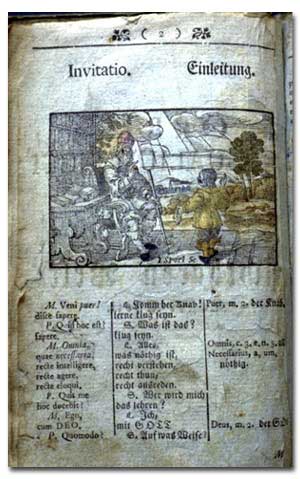 ( 2 )
Invitatio.
Einleitung.
M. Veni puer!
disce sapere.
P. Quis hoc est?
sapere.
M. Omnia,
quae necessaria,
recte intelligere,
recte agere,
recte eloqui,
P. Quis me
hoc docebit?
M. Ego,
cum DEO,
P. Quomodo?
L. Komm her Knab!
lerne klug seyn.
S. Was ist das?
klug seyn.
L. Alles,
was nöthig ist,
recht verstehen,
recht thun,
recht ausreden.
S. Wer wird mich
das lehren?
L. Ich,
mit GOTT
S. Auf was Weise?
Puer, m. 2. der Knab.
Omnis, c. 3. e, n. 3.
Necessarius, a, um,
nöthig.
Deus, m. 2. der
M